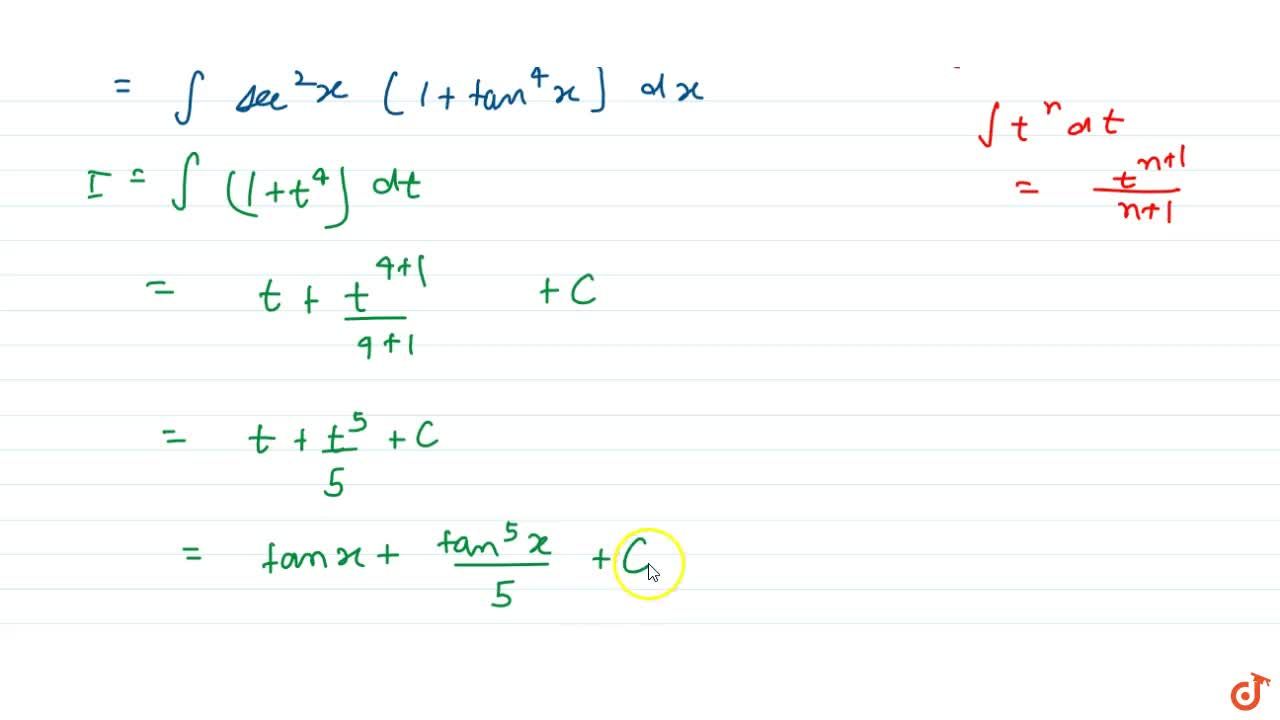 = ∫ sec²x (1 + tan⁴x) dx
I = ∫ (1 + t⁴) dt
= t + t^(4+1)/(4+1) + C
= t + t⁵/5 + C
= tan x + tan⁵x/5 + C
∫ tⁿ dt
= t^(n+1)/(n+1)